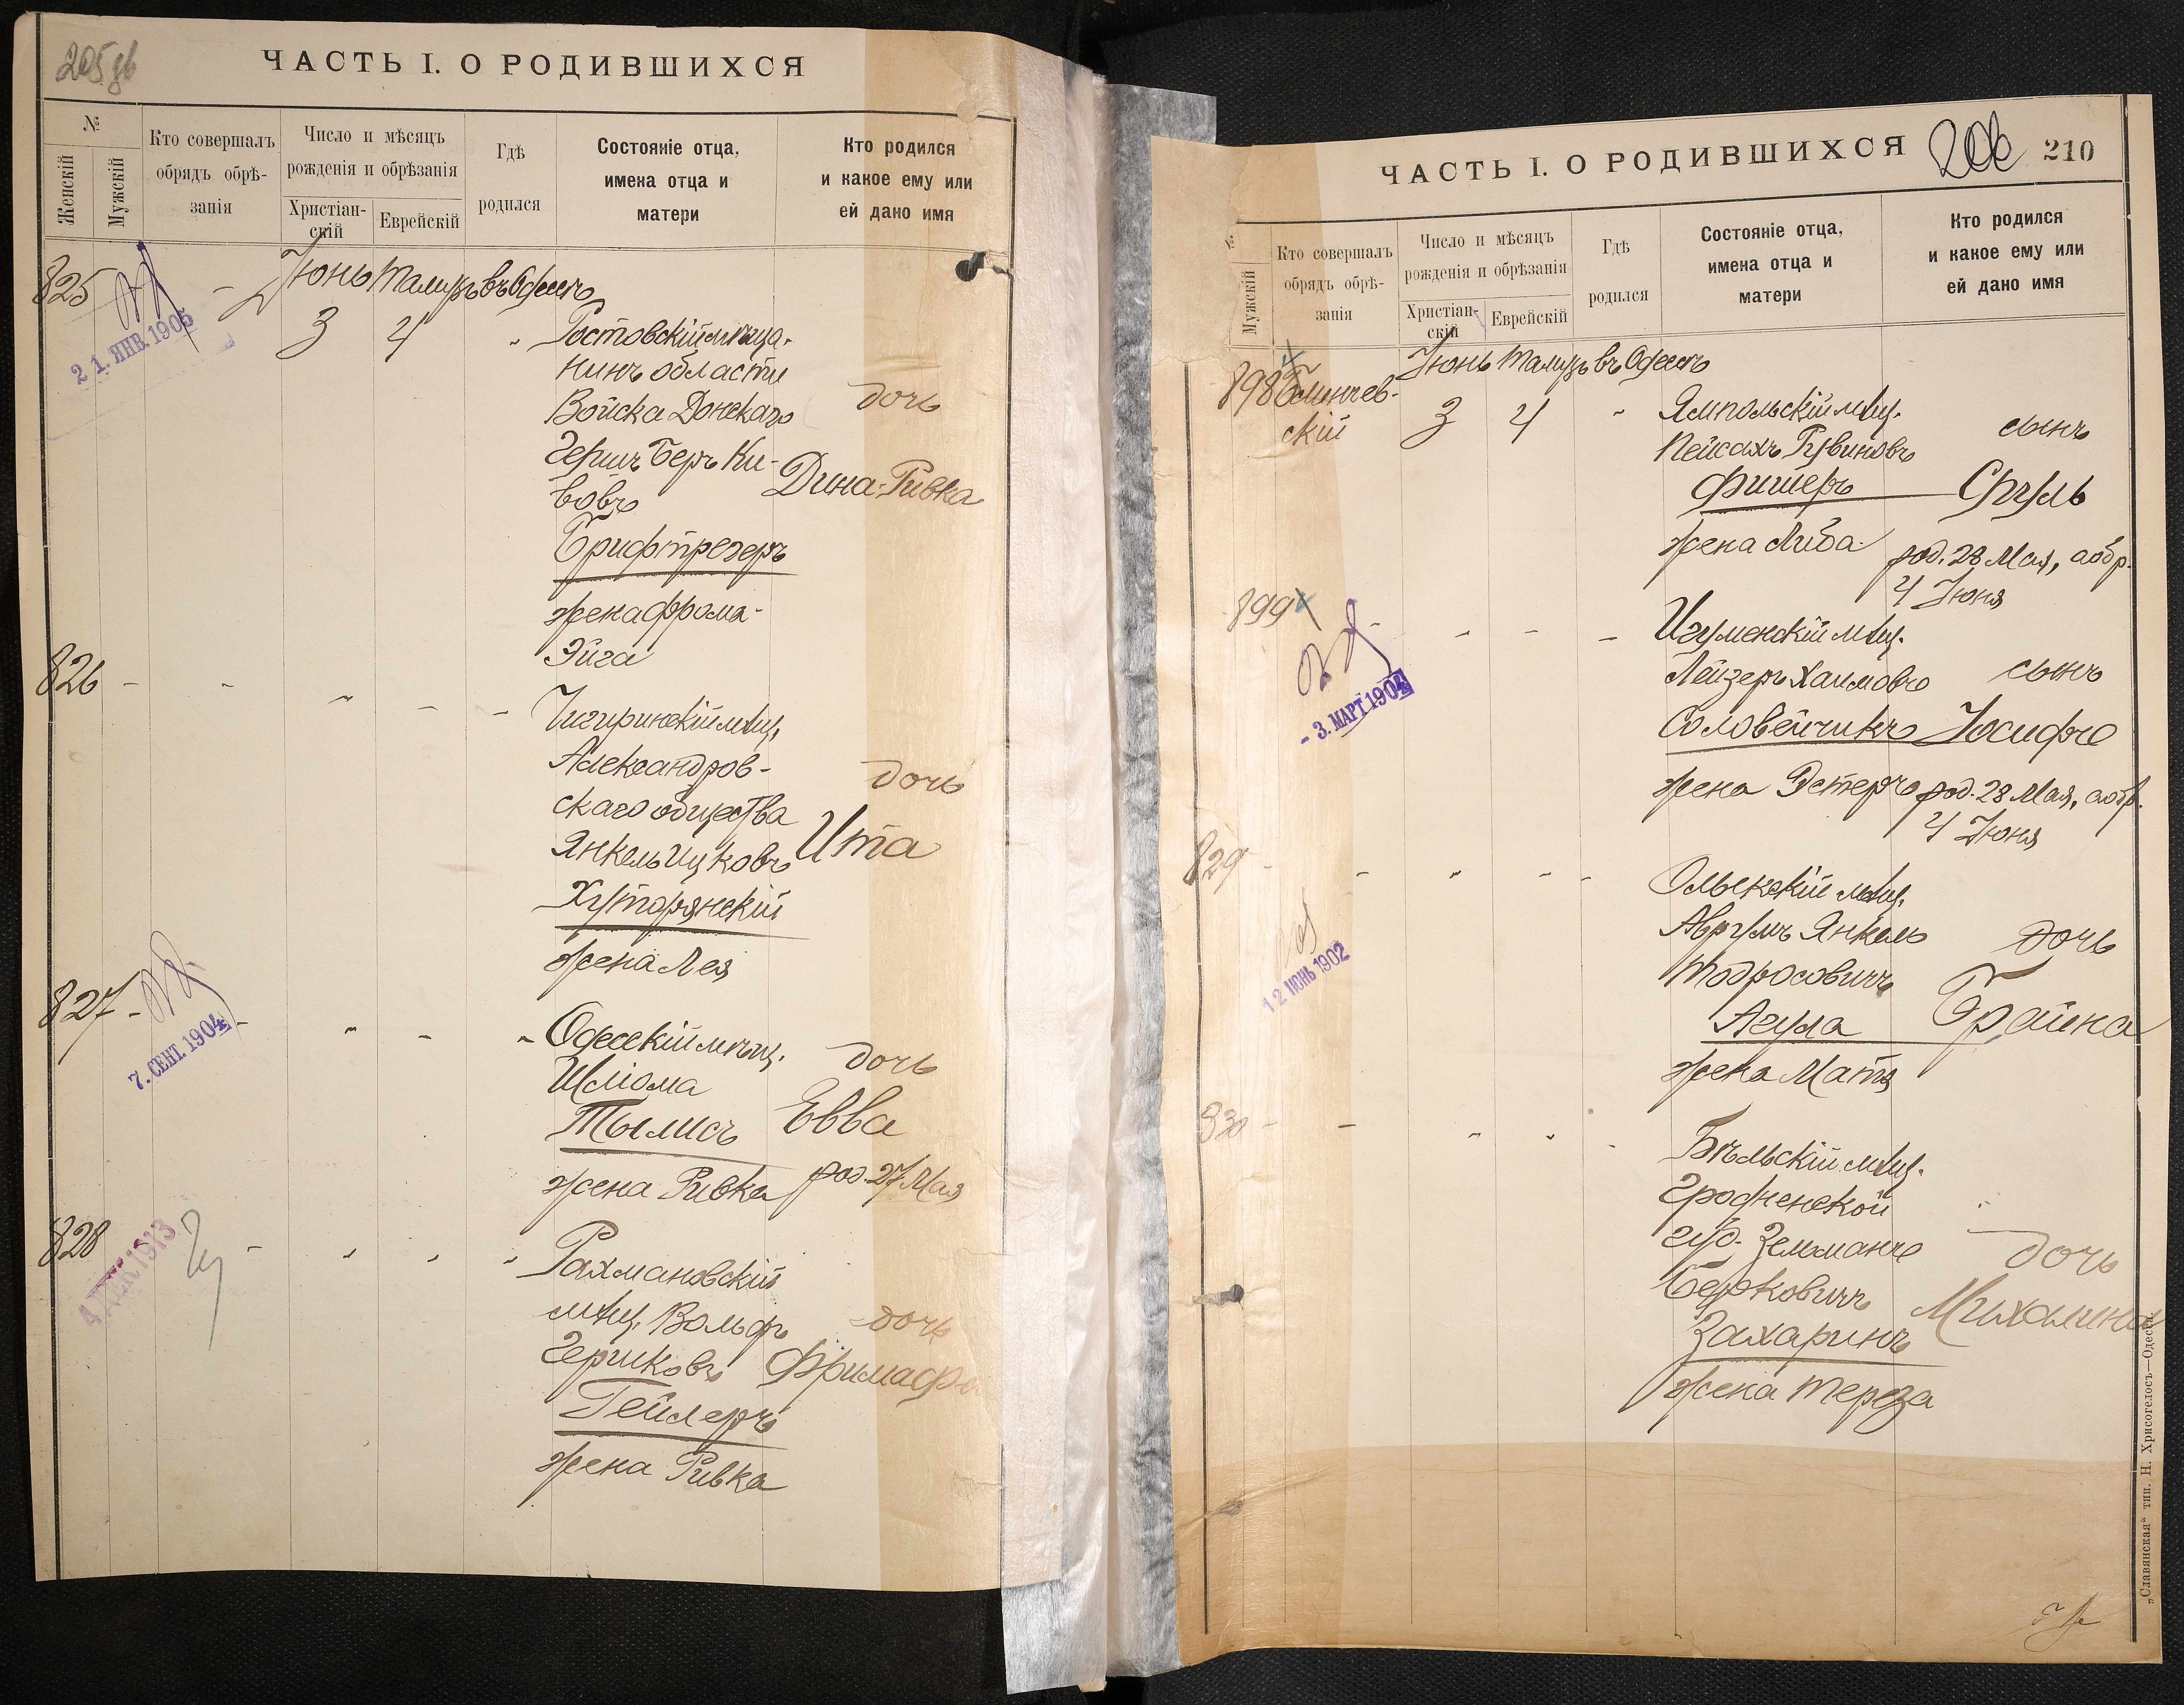 205 об
ЧАСТЬ I. О РОДИВШИХСЯ
№
Женскій
Мужскій
Кто совершалъ
обрядъ обрѣ-
занія
Число и мѣсяцъ
рожденія и обрѣзанія
Христіан-
скій
Еврейскій
Гдѣ
родился
Состояніе отца,
имена отца и
матери
Кто родился
и какое ему или
ей дано имя
825
21. ЯНВ. 1905
Іюнь Тамузъ въ Одессѣ
3 4 " Ростовскій мѣща-
нинъ области
Войска Донскаго
дочь
Гершъ Беръ Ки-
вовъ
Дина-Ривка
Брифтрегеръ
жена Фрома-
Эйга
826 - - " - -
Чигиринскій мѣщ.
Александров-
скаго общества
дочь
Янкель Ицковъ
Ита
Хуторянскій
жена Лея
827 - - " - "
7. СЕНТ. 1904
Одесскій мѣщ.
дочь
Шліома
Тылисъ
Евва
жена Ривка
род. 27 Мая
828 - " " "
4 ДЕК 1913
Рахмановскій
мѣщ. Вольфъ
дочь
Гершковъ
Фрима
Гейлеръ
жена Ривка
ЧАСТЬ I. О РОДИВШИХСЯ
206
210
№
Мужскій
Кто совершалъ
обрядъ обрѣ-
занія
Число и мѣсяцъ
рожденія и обрѣзанія
Христіан-
скій
Еврейскій
Гдѣ
родился
Состояніе отца,
имена отца и
матери
Кто родился
и какое ему или
ей дано имя
Іюнь Тамузъ въ Одессѣ
898
скій
3 4 " Ямпольскій мѣщ.
сынъ
Пейсахъ Рувиновъ
Фишеръ
Сруль
жена Либа
род. 28 Мая, а обр.
4 Іюня
899 - - - -
- 3. МАРТ 1904
Игуменскій мѣщ.
Лейзеръ Хаимовъ
сынъ
Соловейчикъ
Іосифъ
жена Эстеръ
род. 28 Мая, а обр.
4 Іюня
829 - - " - -
12 ИЮНЬ 1902
Олыкскій мѣщ.
Аврумъ Янкель
дочь
Тодросовичъ
Агула
Брайна
жена Матя
830 - - " "
Бѣльскій мѣщ.
Гродненской
губ. Зельманъ
дочь
Берковичъ
Михалина
Захаринъ
жена Тереза
„Славянская“ тип. Н. Хрисогелосъ—Одесса.